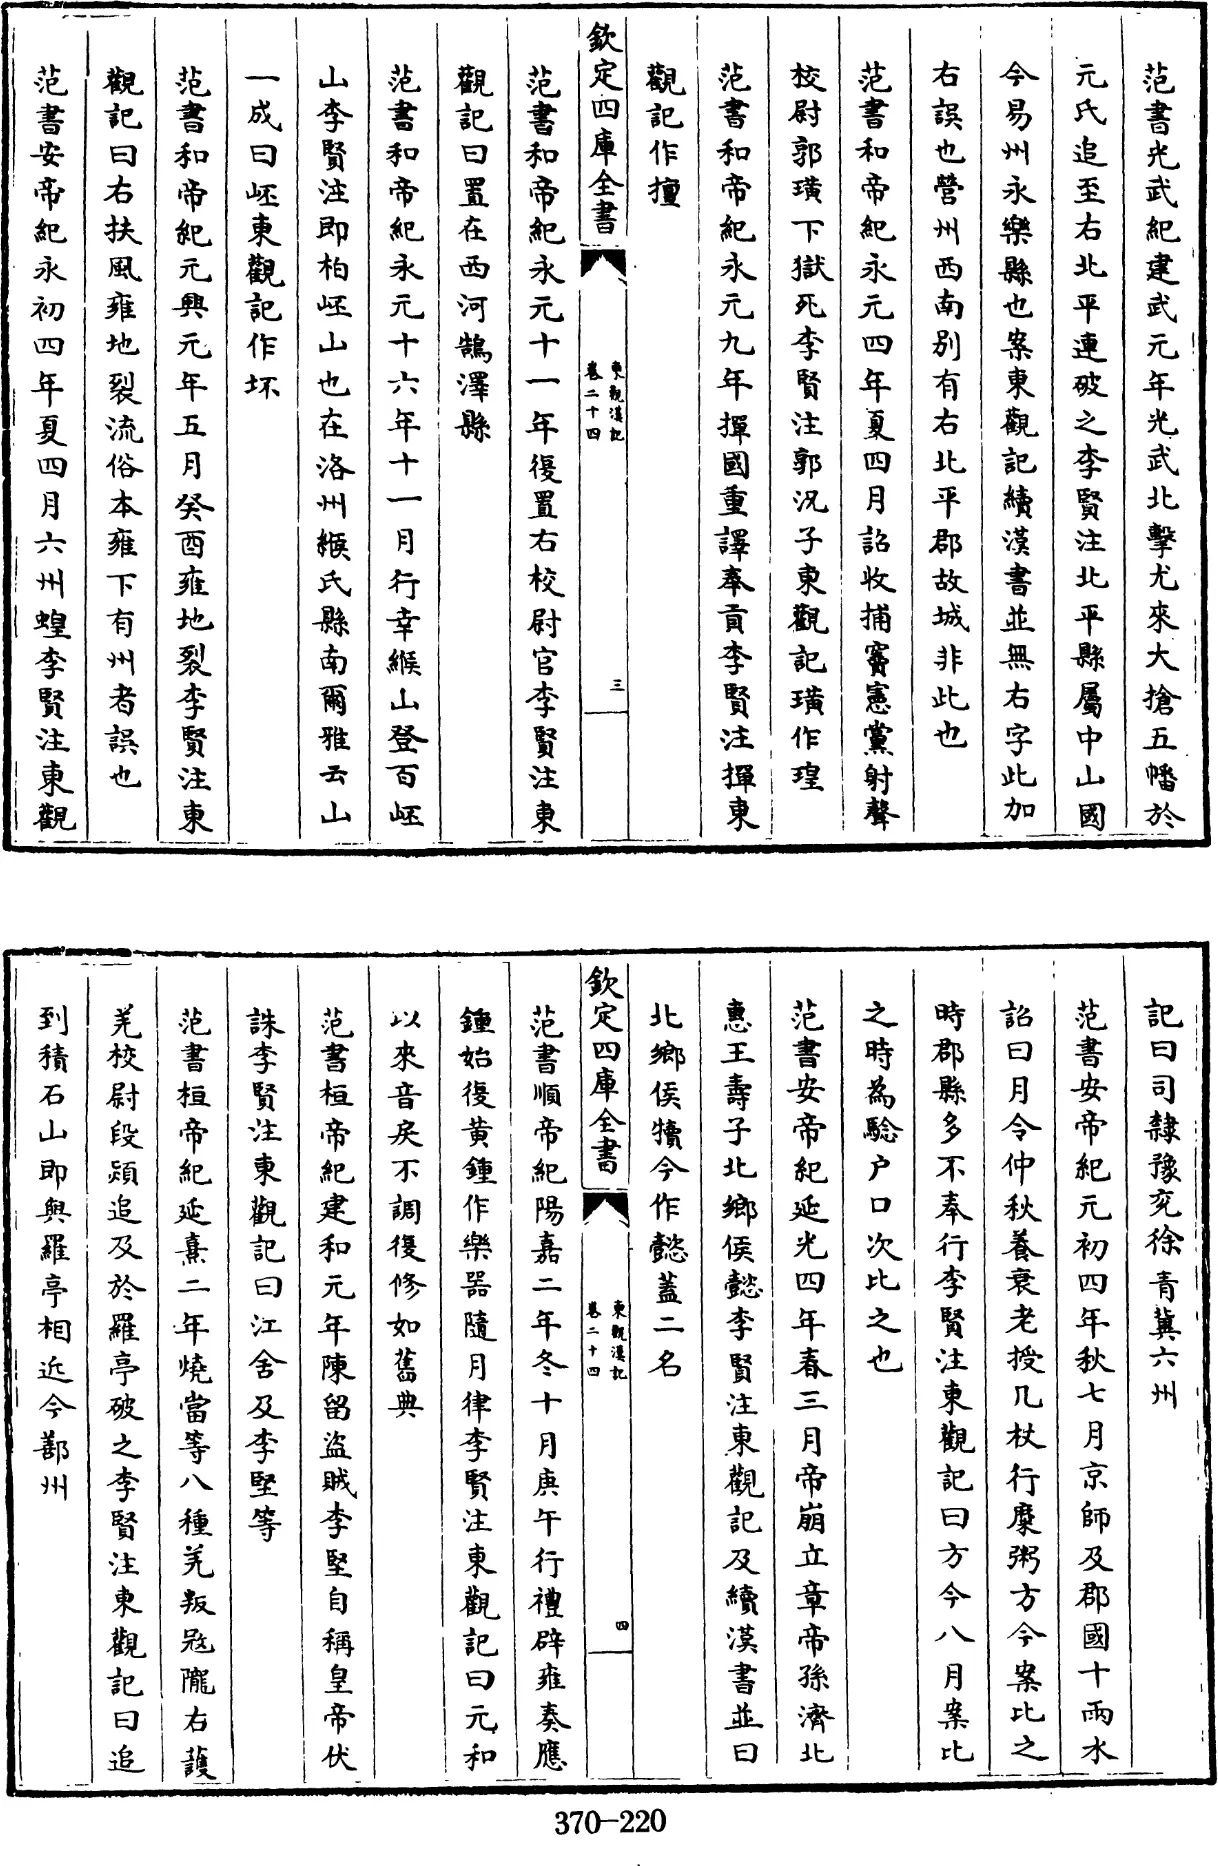 范書光武紀建武元年光武北擊尤來大搶五幡於
元氏追至右北平連破之李賢注北平縣屬中山國
今易州永樂縣也案東觀記續漢書並無右字此加
右誤也營州西南別有右北平郡故城非此也
范書和帝紀永元四年夏四月詔收捕竇憲黨射聲
校尉郭璜下獄死李賢注郭況子東觀記璜作瑝
范書和帝紀永元九年撣國重譯奉貢李賢注撣東
觀記作擅
欽定四庫全書
東觀漢記
卷二十四
三
范書和帝紀永元十一年復置右校尉官李賢注東
觀記曰置在西河鵠澤縣
范書和帝紀永元十六年十一月行幸緱山登百岯
山李賢注即柏岯山也在洛州緱氏縣南爾雅云山
一成曰岯東觀記作坏
范書和帝紀元興元年五月癸酉雍地裂李賢注東
觀記曰右扶風雍地裂流俗本雍下有州者誤也
范書安帝紀永初四年夏四月六州蝗李賢注東觀
記曰司隸豫兖徐青冀六州
范書安帝紀元初四年秋七月京師及郡國十雨水
詔曰月令仲秋養衰老授几杖行糜粥方今案比之
時郡縣多不奉行李賢注東觀記曰方今八月案比
之時為驗户口次比之也
范書安帝紀延光四年春三月帝崩立章帝孫濟北
惠王壽子北鄉侯懿李賢注東觀記及續漢書並曰
北鄉侯犢今作懿蓋二名
欽定四庫全書
東觀漢記
卷二十四
四
范書順帝紀陽嘉二年冬十月庚午行禮辟雍奏應
鍾始復黄鍾作樂器隨月律李賢注東觀記曰元和
以來音戾不調復修如舊典
范書桓帝紀建和元年陳留盜賊李堅自稱皇帝伏
誅李賢注東觀記曰江舍及李堅等
范書桓帝紀延熹二年燒當等八種羌叛冦隴右護
羌校尉段熲追及於羅亭破之李賢注東觀記曰追
到積石山即與羅亭相近今鄯州
370-220